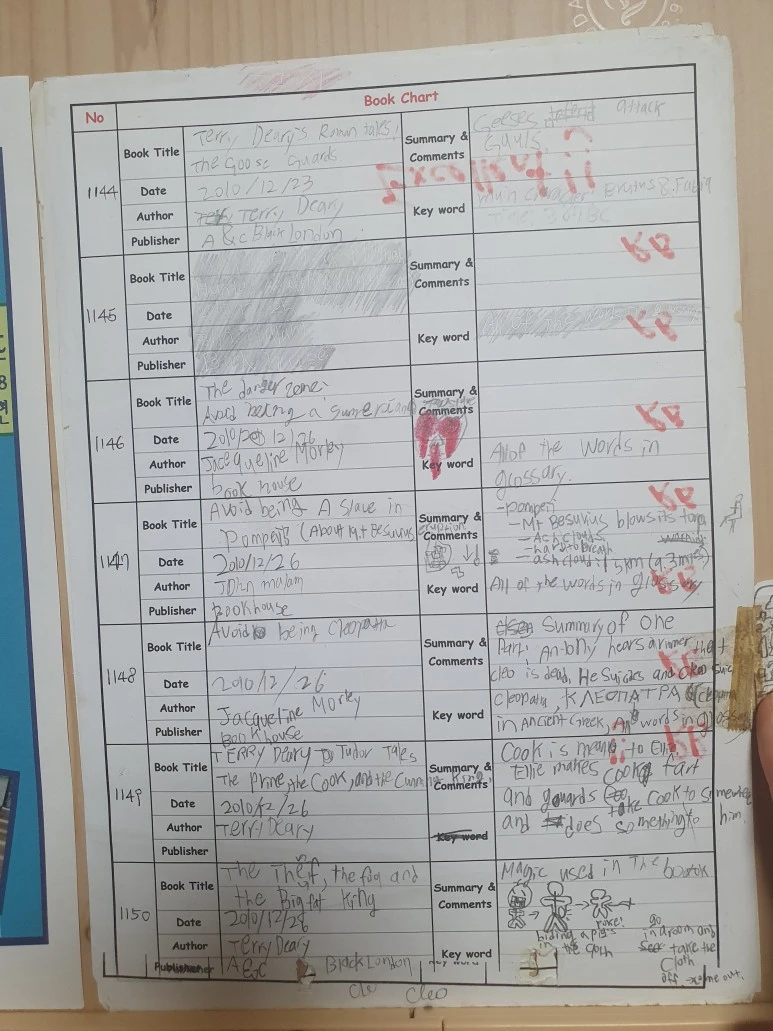 Book Chart
No
1144
Book Title
Terry Deary's Roman tales:
The Goose Guards
Date
2010/12/23
Author
Terry Deary
Publisher
A & c Black London
Summary &
Comments
Geeses attack
Gauls.
Excellent!!
Key word
main character: Brutus & Fubia
Time: BC
1145
Book Title
Date
Author
Publisher
Summary &
Comments
Key word
1146
Book Title
The danger zone:
Avoid being a sumerian
Date
2010/ 12/26
Author
Jacequeline Morley
Publisher
book house
Summary &
Comments
Key word
All of the words in
glossary.
1147
Book Title
Avoid being A Slave in
Pompeii (About Mt Besuvius
eruption
Date
2010/12/26
Author
John malam
Publisher
Bookhouse
Summary &
Comments
-pompeii
-Mt Besuvius blows its top
- Ash clouds
- hard to breath
- ash cloud: 15km (9.3miles)
Key word
All of the words in glossary
1148
Book Title
Avoid being Cleopatra
Date
2010/12/26
Author
Jacqueline Morley
Publisher
Book house
Summary &
Comments
Summary of one
Part: Antony hears a rumer that
cleo is dead, He Suicides and cleo suic
Key word
Cleopatra, ΚΛΕΟΠΑΤΡΑ
in Ancient Greek, All words in glossary
1149
Book Title
TERRY Deary Tudor Tales
The prince, the Cook, and the Cunning King
Date
2010/12/26
Author
Terry Deary
Publisher
Summary &
Comments
Cook is mean to Ellie.
Ellie makes cook tart
and guards take cook to somewhere
and does something to him.
Key word
1150
Book Title
The Thief, the fog and
the Big fat King
Date
2010/12/28
Author
Terry Deary
Publisher
A & C Black London
Summary &
Comments
Magic used in The book
hiding a pigs
in the cloth
go
in a room and
take the
cloth
off → come out.
Key word
Cle Cleo